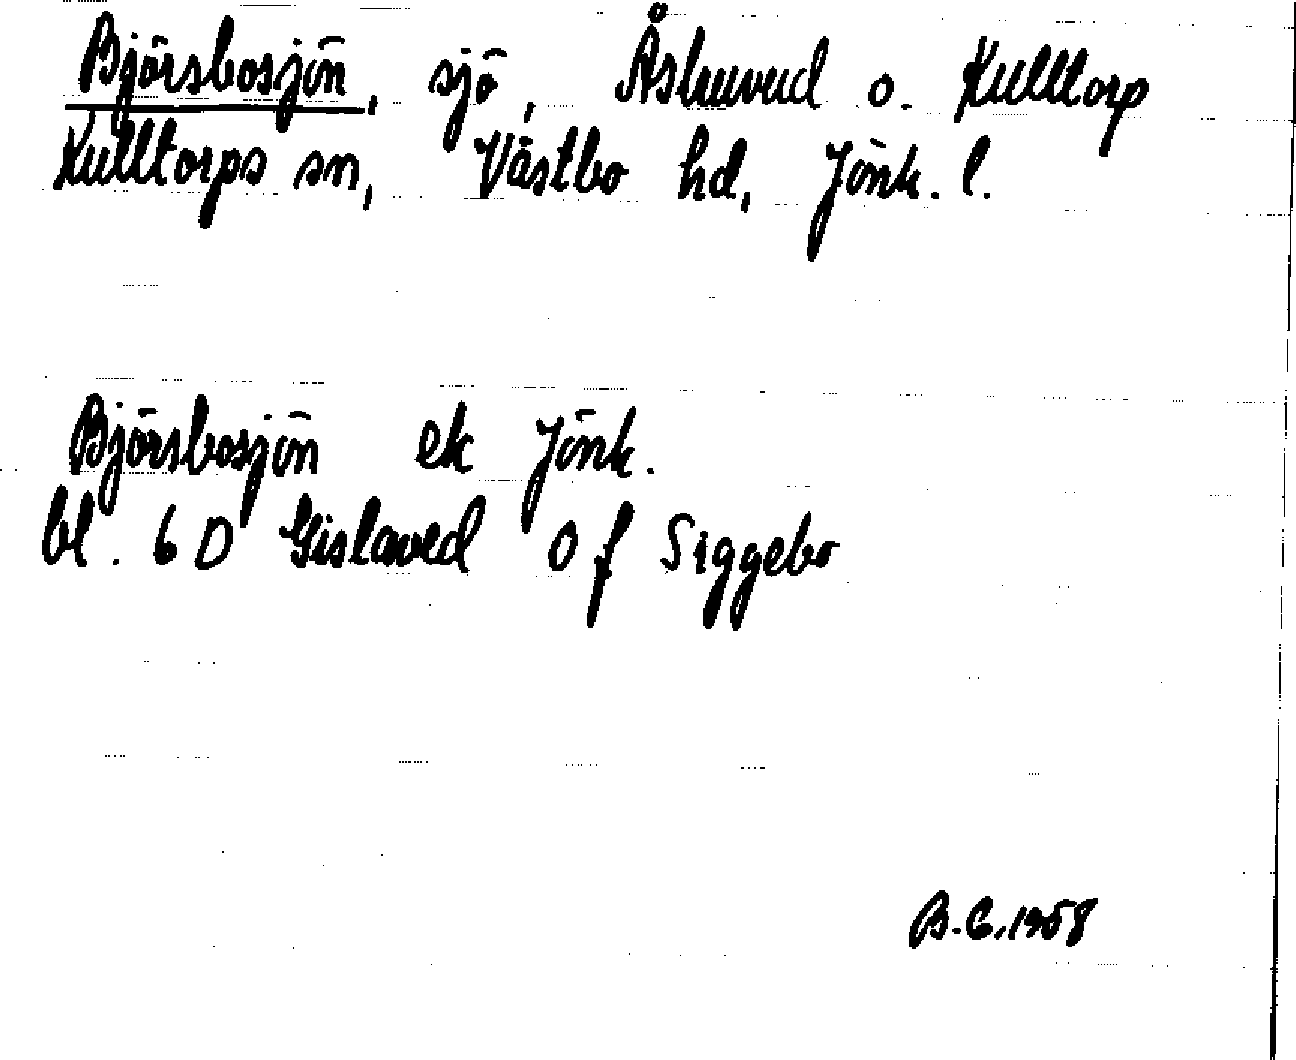 Björsbosjön, sjö, Åshuvud o. Kulltorp
Kulltorps sn, Västbo hd, Jönk. l.
Björsbosjön ek Jönk.
bl. 6 D Gislaved 0 f Siggebo
B.E.1958